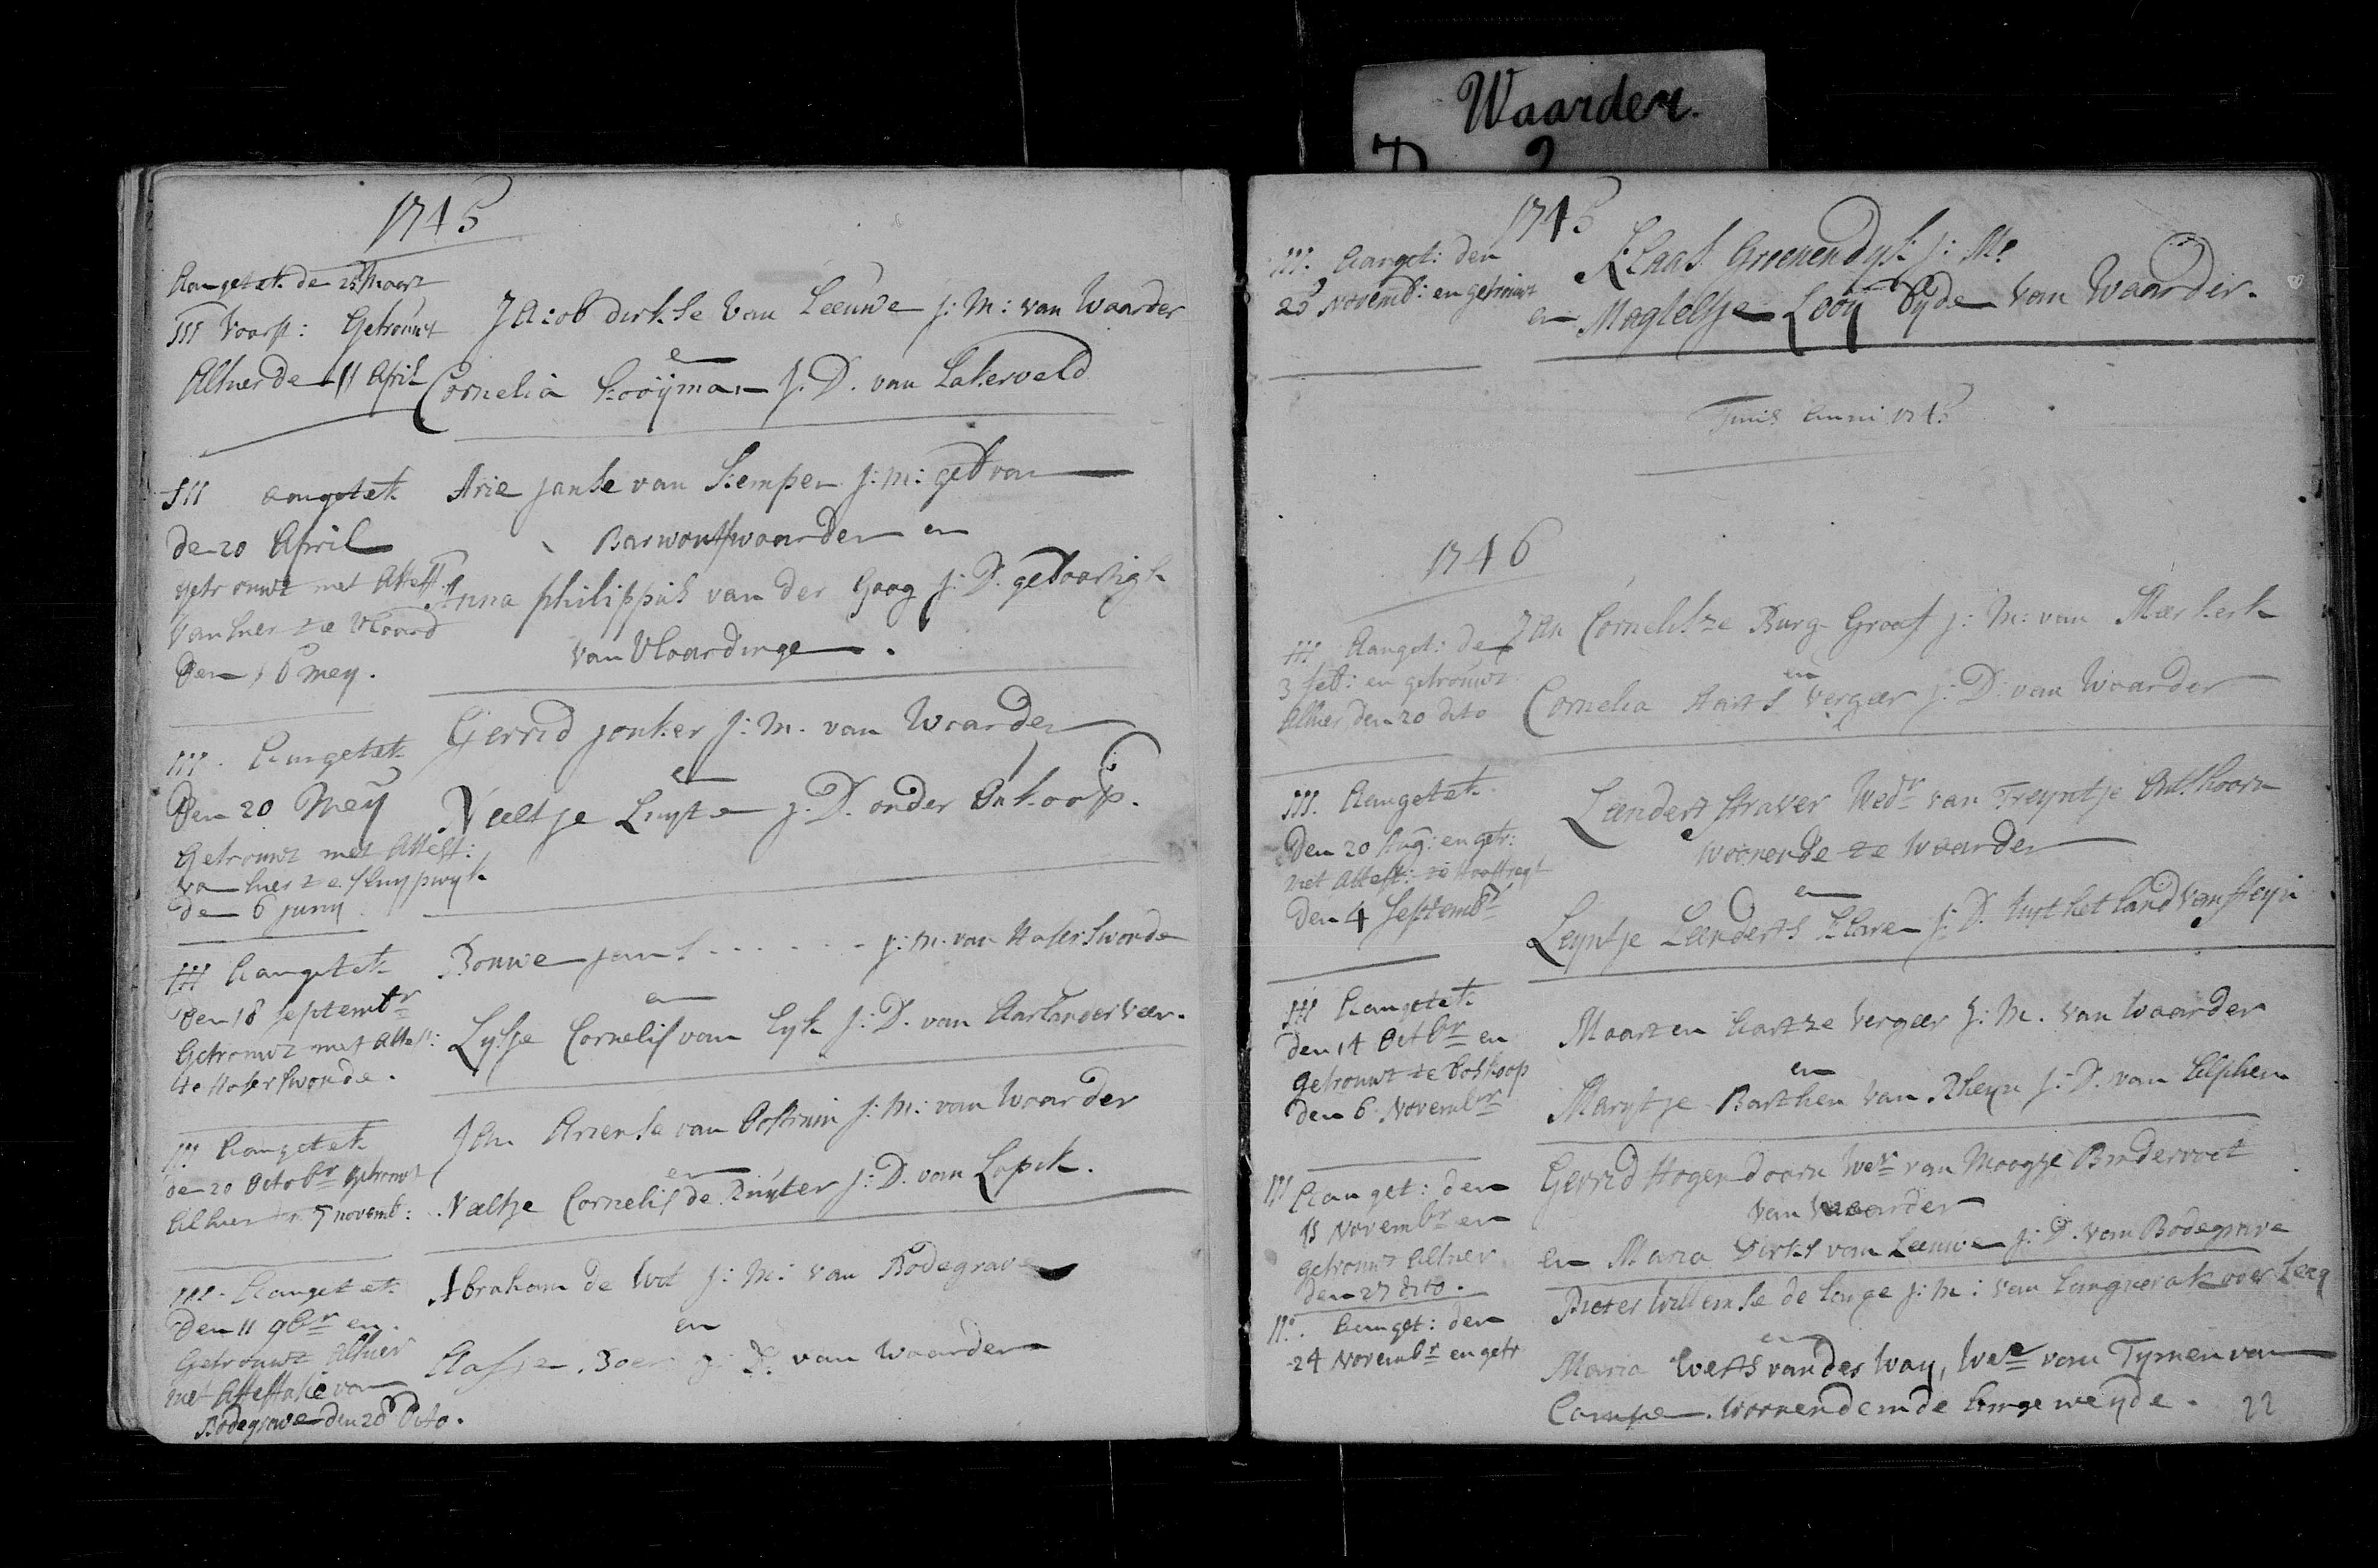 Waarder.
D 2
1745
Aangetek. de 25 Maart
III Voorst: Getrouwt
Alhier de 11 April
Jacob dirkse van Leeuwe J: M: van Waarder
e
Cornelia Kooijman J. D. van Lakerveld
III aangetek
de 20 April
getrouwt met Attest
van hier te Vlaard
den 16 mey.
Arie janse van Kempen j: m: geb van
Barwoutswaarder en
Anna philippus van der Gaag j: D. geboortigh
van Vlaardinge.
III. Aangetek
Den 20 Mey
Getrouwt met Attest:
van hier te sluypwyk
de 6 juny
Gerrid jonker J: m. van Waarder
e
Neeltje Luyte j: D. onder
III Aangetek
Den 18 septembr
Getrouwt met Attest:
te Haserswoude.
Bouwe jans - - - - - - j: m. van Haserswoude
en
Lysje Cornelis van Eyk J: D. van Aarlanderveen.
III Aangetek
de 20 Octobr getrouwt
Alhier den 7 novemb:
Jan Ariense van Oostrum J: M: van Waarder
en
Neeltje Cornelis de Ruyter J: D. van Lopik.
III. Aangetek.
Den 11 9br en.
Getrouwt Alhier
met Attestatie van
Bodegrave den 28 Dito.
Abraham de Wit J: M: van Bodegrave
en
Boer J: D. van Waarder
1745
III. Aanget: den
Novemb: en getrouwt
Klaas Groenendyk J: M:
en Magteltje Looy byde van Waarder.
Finis Anni 1745
1746
III Aanget: de
3 feb: en getrouwt
Alhier den 20 dito
Jan Cornelisze Burg Graaf j: M: van Meerkerk
en
Cornelia Aarts Vergeer j: D: van Waarder
III. Aangetek.
Den 20 Aug: en getr:
met Attest: te
Den 4 Septembr
Leendert Straver Wedr van Treyntje
woonende te Waarder
en
Leyntje Leenderts J: D. uyt het land van Steyn
III Aangetek
den 14 Octbr en
getrouwt te Boskoop
den 6 Novembr
Maarten Aartze Vergeer J: M. van Waarder
en
Marytje Barthen van Rheyn J: D. van Alphen
III Aanget: den
11 Novembr en
getrouwt Alhier
den 27 dito.
Gerrid Hogendoorn Wer van Moogje Bredervoet
van Waarder
en Maria Dirks van Leeuwe j: D. van Bodegrave
II. Aanget: den
24 Novembr en getr
Pieter Willemse de Lange J: M: van Langeerak over Lecq
en
Maria Weits van der Way, Wee van Tymen van
Campen. Woonende in de Lange weyde.
22